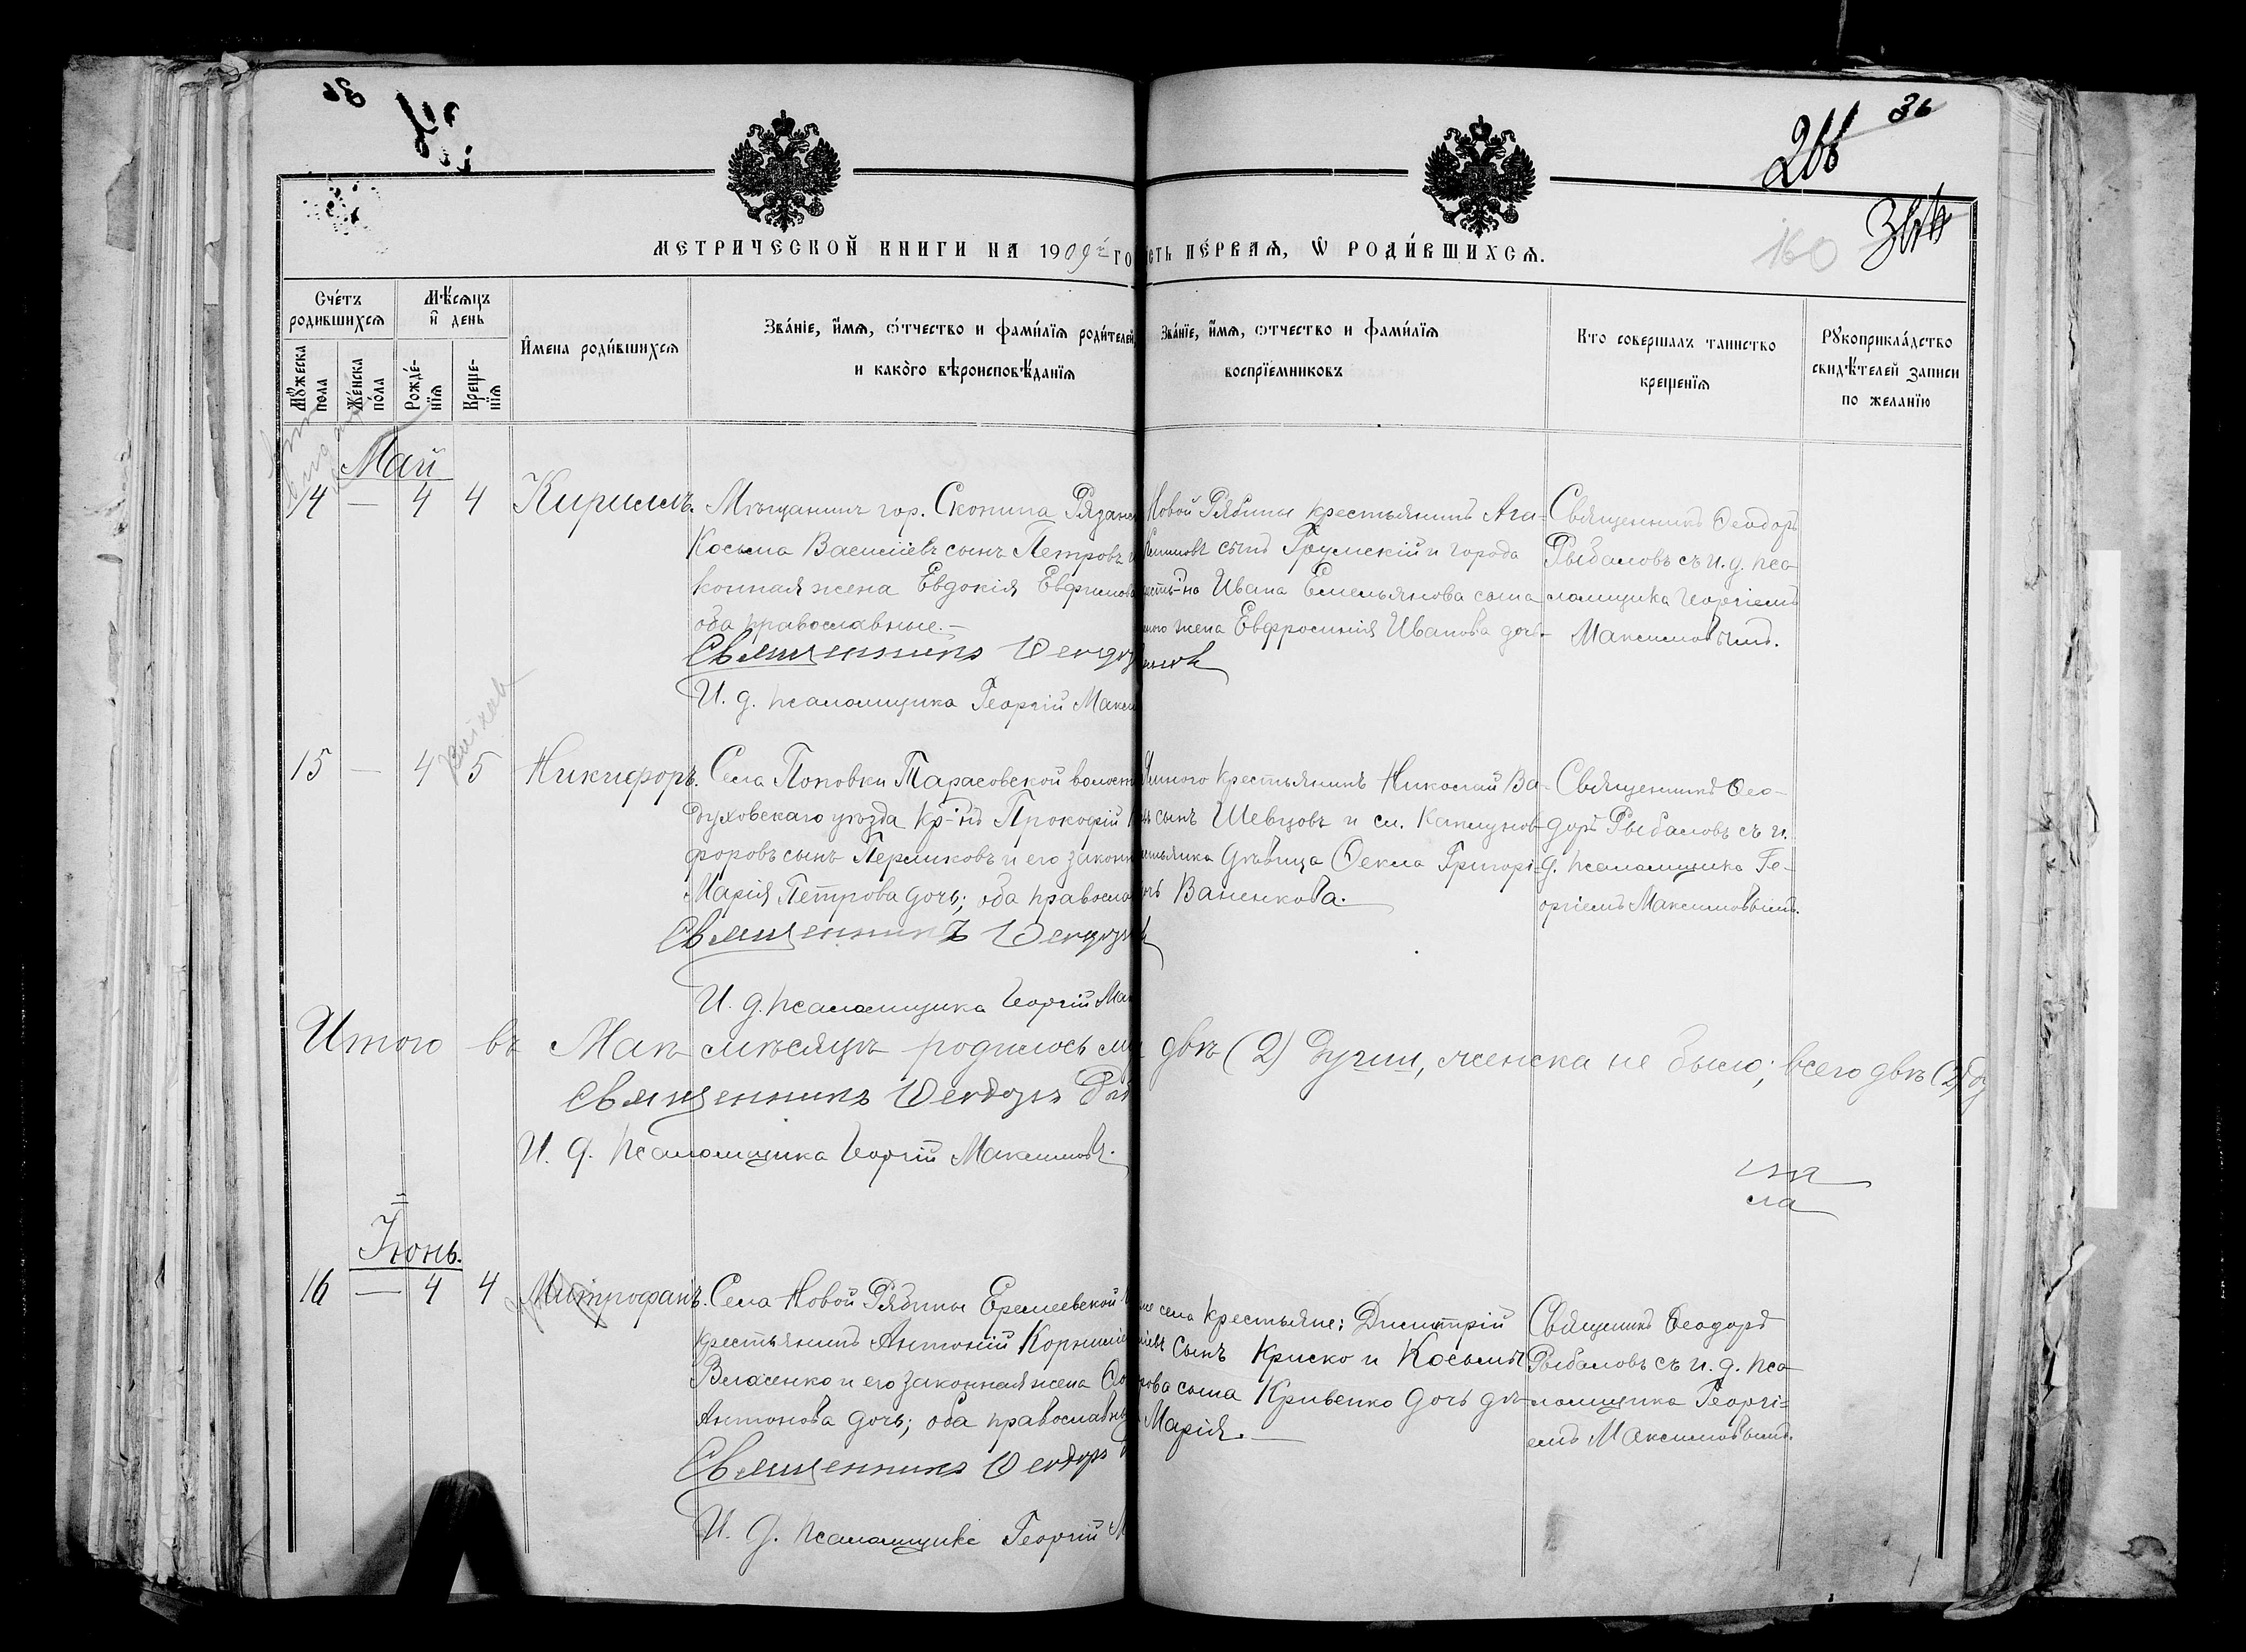 36
266
36
МЕТРИЧЕСКОЙ КНИГИ НА 1909й ГО
СТЬ ПЕРВАЯ, Ѡ РОДИВШИХСЯ.
160
Счетъ родившихся
Мѣсяцъ и день
Имена родившихся
Званіе, имя, отчество и фамилія родителей,
и какого вѣроисповѣданія
Званіе, имя, отчество и фамилія
воспріемниковъ
Кто совершалъ таинство
крещенія
Рукоприкладство
свидѣтелей записи
по желанію
Мужеска пола
Женска пола
Рожденія
Крещенія
Май
14 — 4 4 Кириллъ. Мѣщанинъ гор. Скопина Рязан
Косьма Василіевъ сынъ Петровъ и
конная жена Евдокія Евфимова
оба православные.—
Священникъ Ѳеодор
И. д. псаломщика Георгій Макси
Новой Рябины крестьянинъ Ага-
сынъ Грумскій и города
Ивана Емельянова сына
жена Евфросинія Иванова дочь.
Священникъ Ѳеодоръ
Рыбаловъ съ и. д. пса-
ломщика Георгіемъ
Максимовымъ.
15 — 4 5 Никифоръ. Села Поповки Тарасовской волости
духовскаго уѣзда кр-нъ Прокофій
форовъ сынъ Перликовъ и его законн
Марія Петрова дочь; оба правосла
Священникъ Ѳеодор
И. д. псаломщика Георгій Мак
крестьянинъ Николай Ва-
сынъ Шевцовъ и сл. Каплунов-
дѣвица Ѳекла Григорі-
Ваненкова.
Священникъ Ѳео-
доръ Рыбаловъ съ и.
д. псаломщика Ге-
оргіемъ Максимовымъ.
Итого въ Маѣ мѣсяцѣ родилось му
двѣ (2) души, женска не было; всего двѣ (2) ду
Священникъ Ѳеодоръ Рыб
И. д. псаломщика Георгій Максимовъ.
Іюнь.
16 — 4 4 Митрофанъ. Села Новой Рябины Еремеевской
крестьянинъ Антоній Корниліе
Власенко и его законная жена
Антонова дочь; оба православны
Священникъ Ѳеодоръ
И. д. псаломщика Георгій М
села крестьяне: Димитрій
сынъ Криско и Косьмы
сына Кривенко дочь дѣ-
Марія.—
Священникъ Ѳеодоръ
Рыбаловъ съ и. д. пса-
ломщика Георгі-
емъ Максимовымъ.